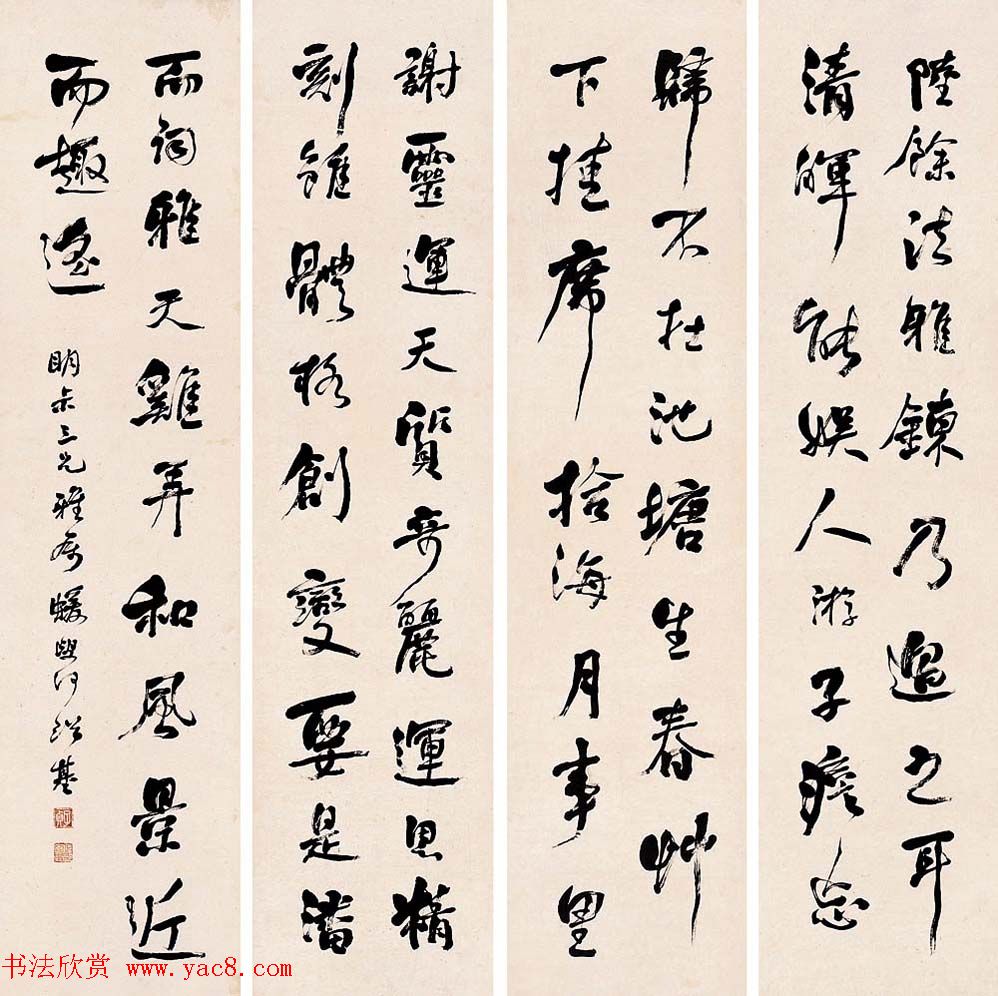 陸餘法雅鍊乃過之耳
清暉能娛人游子憺忘
歸不在池塘生春艸
下挂席拾海月事里
謝靈運天質奇麗運思精
刻雖體格創變要是潘
而詞雅天雞弄和風景近
而趣遙
明叔三兄雅屬 蝯叟何紹基
书法欣赏 www.yac8.com